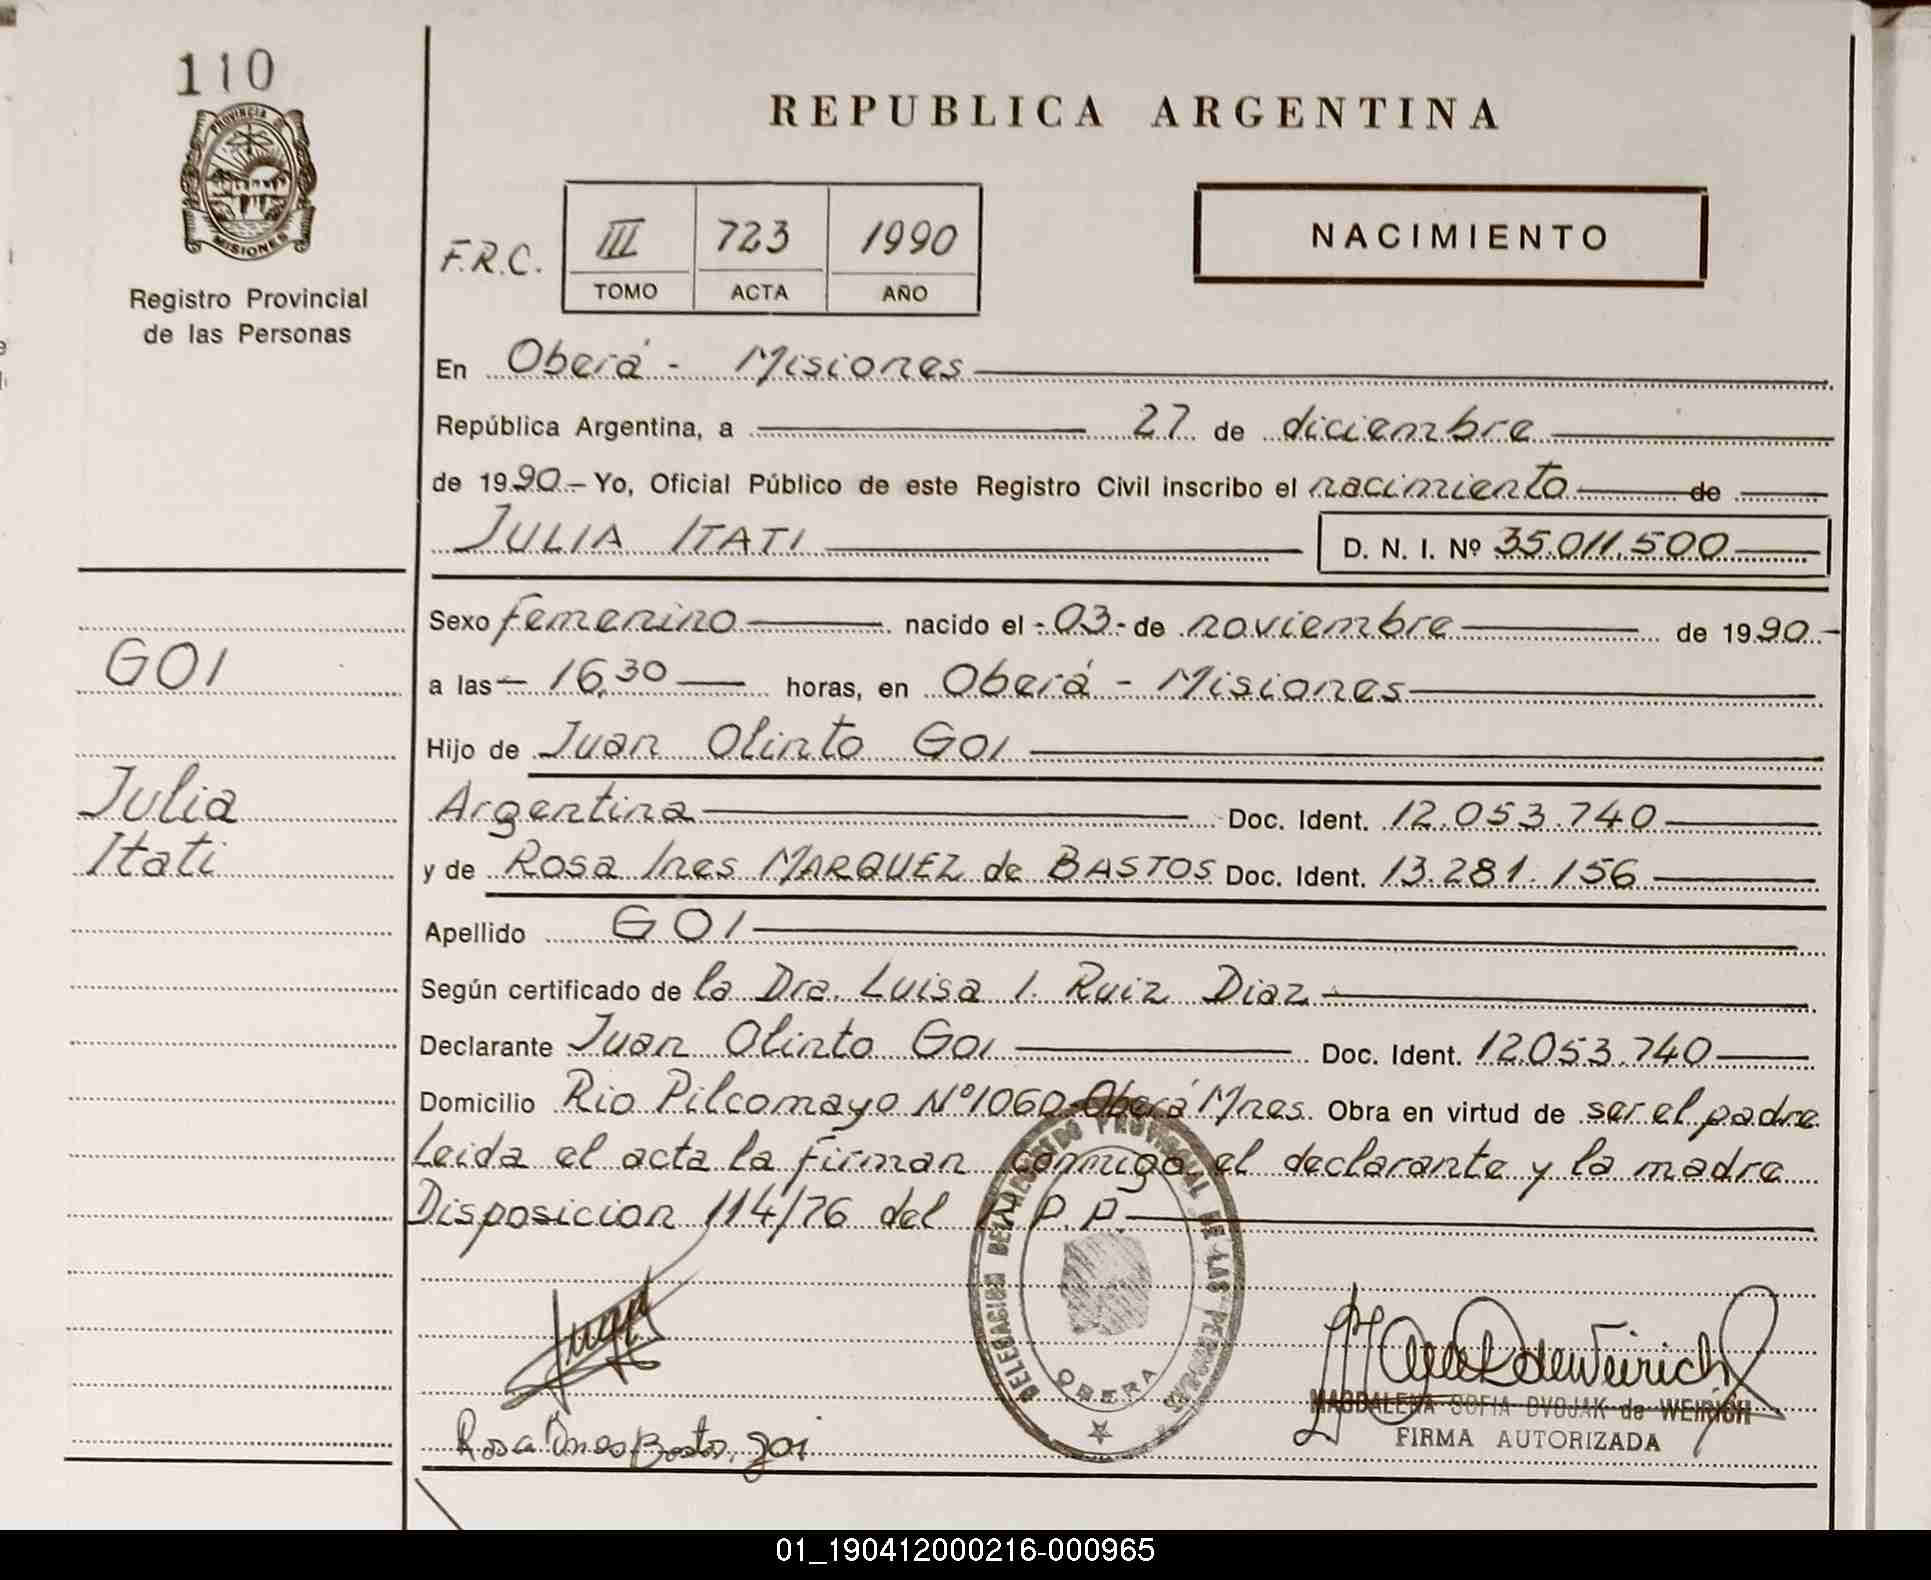 110
PROVINCIA DE
MISIONES
Registro Provincial
de las Personas
REPUBLICA ARGENTINA
F.R.C. III 723 1990
TOMO ACTA AÑO
NACIMIENTO
En Oberá - Misiones
República Argentina, a 27 de diciembre
de 1990 - Yo, Oficial Público de este Registro Civil inscribo el nacimiento de
JULIA ITATI D. N. I. Nº 35.011.500
Sexo femenino nacido el -03- de noviembre de 1990.-
GOI
a las - 16,30 horas, en Oberá - Misiones
Hijo de Juan Olinto GOI
Julia
Argentina Doc. Ident. 12.053.740
Itati
y de Rosa Ines MARQUEZ de BASTOS Doc. Ident. 13.281.156
Apellido GOI
Según certificado de la Dra. Luisa I. Ruiz Diaz
Declarante Juan Olinto Goi Doc. Ident. 12.053.740
Domicilio Rio Pilcomayo Nº 1060 - Oberá Mnes. Obra en virtud de ser el padre
Leida el acta la firman conmigo, el declarante y la madre
Disposicion 114/76 del R.P.P.
DELEGACION DEL REGISTRO PROVINCIAL DE LAS PERSONAS
OBERA
MAGDALENA SOFIA DVOJAK de WEIRICH
FIRMA AUTORIZADA
Rosa Ines Bastos, goi
01_190412000216-000965